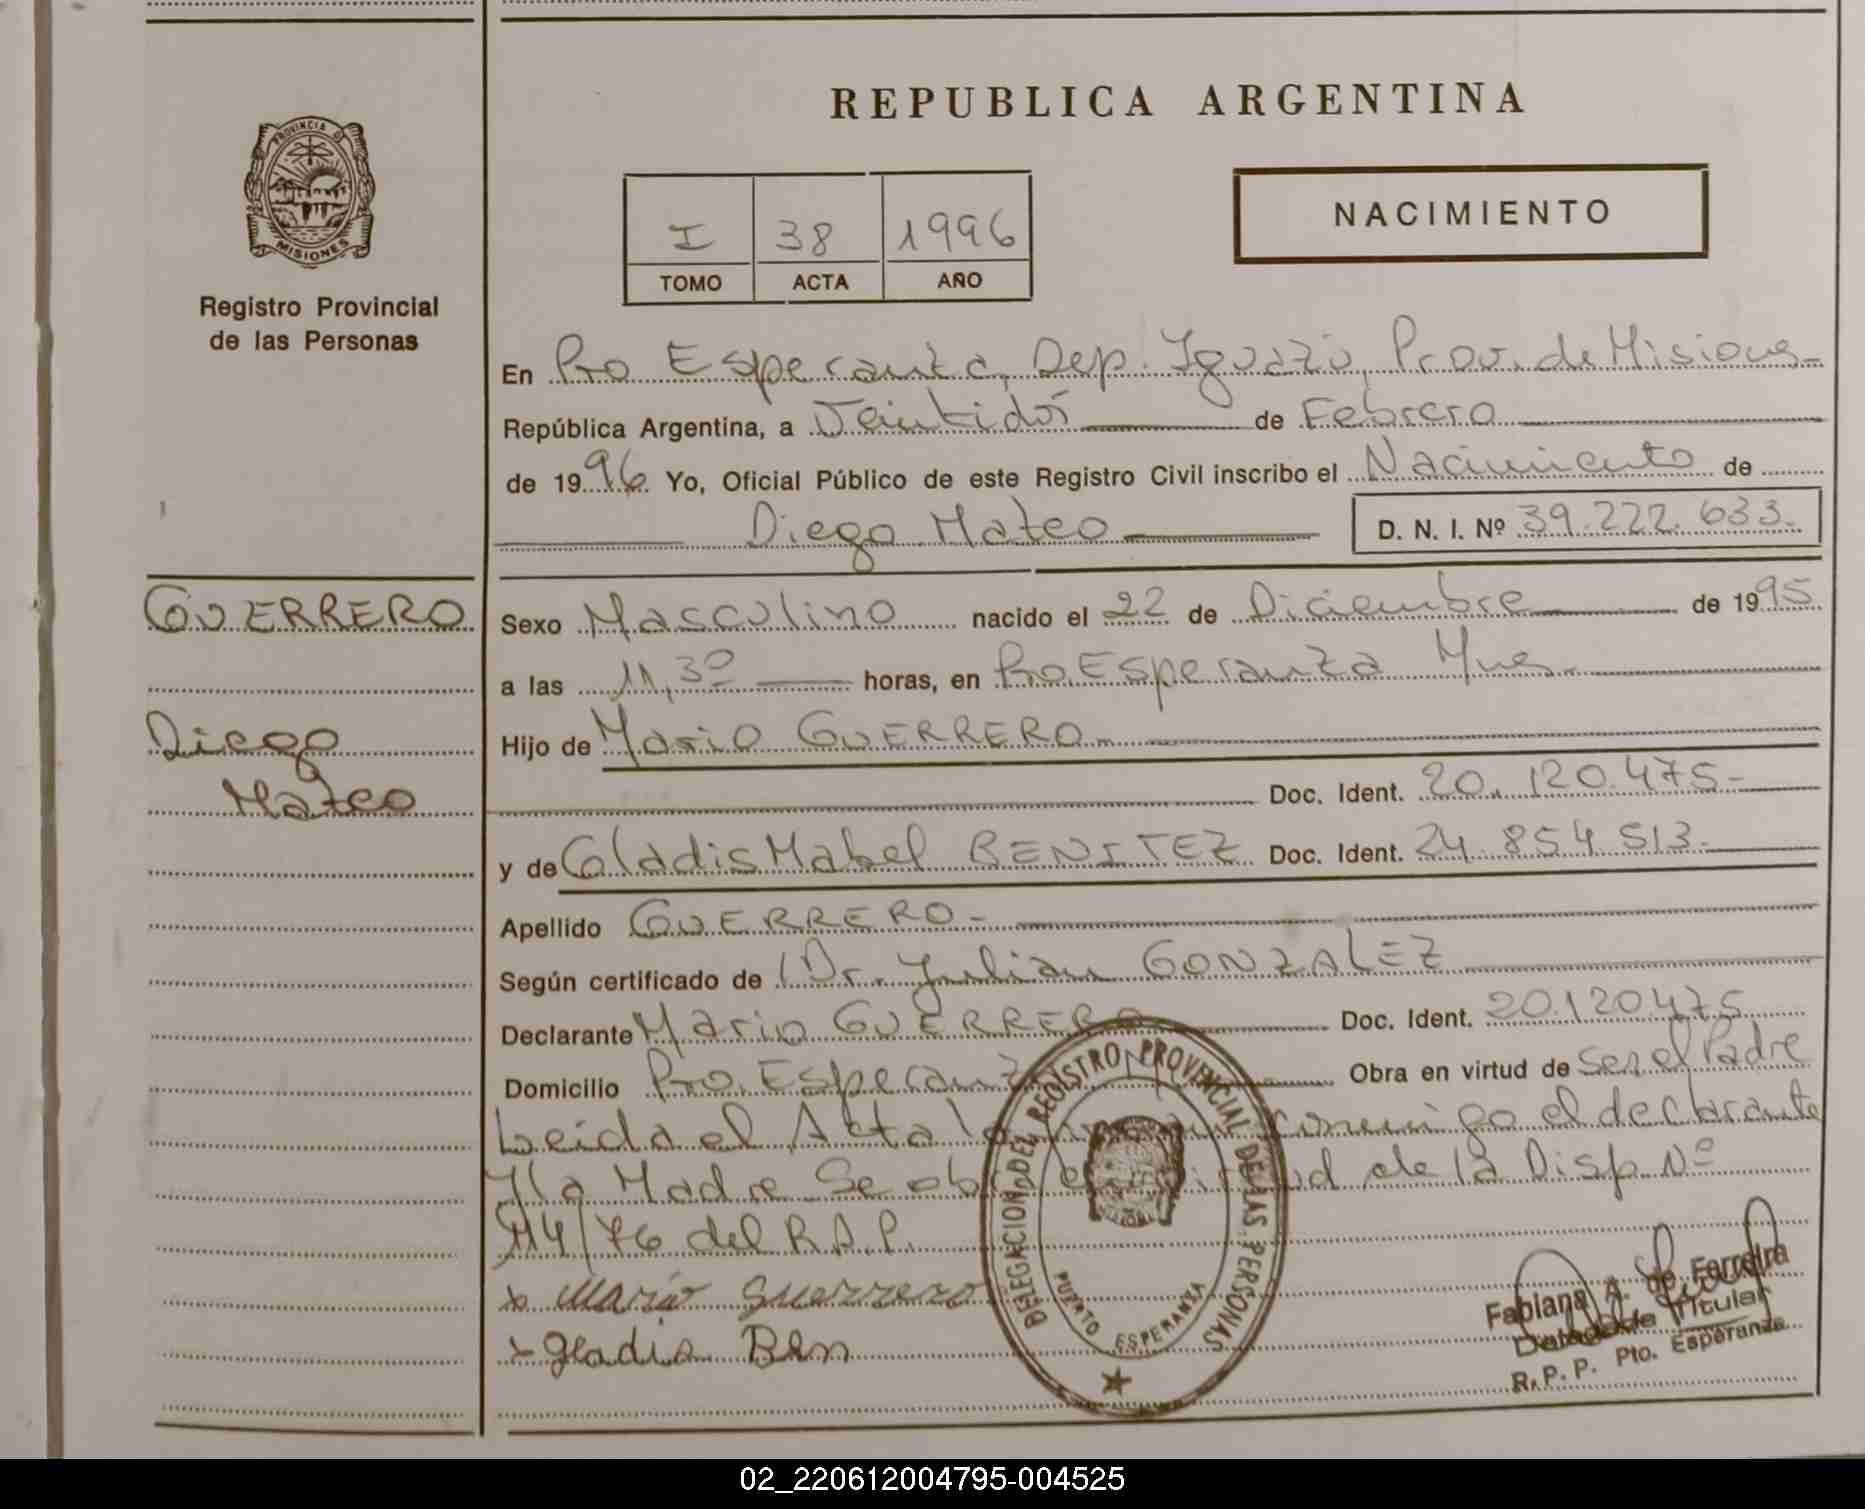 REPUBLICA ARGENTINA
PROVINCIA DE
MISIONES
Registro Provincial
de las Personas
I 38 1996
TOMO ACTA AÑO
NACIMIENTO
En Pto Esperanza, Dep. Iguazú, Prov. de Misiones
República Argentina, a Veintidós de Febrero
de 1996 Yo, Oficial Público de este Registro Civil inscribo el Nacimiento de
Diego Mateo D. N. I. Nº 39.222.633.
GUERRERO
Diego
Mateo
Sexo Masculino nacido el 22 de Diciembre de 1995
a las 11,30 horas, en Pto Esperanza Mnes.
Hijo de Mario GUERRERO
Doc. Ident. 20.120.475-
y de Gladis Mabel BENITEZ Doc. Ident. 24.854.513-
Apellido GUERRERO-
Según certificado de Dr. Julian GONZALEZ
Declarante Mario GUERRERO Doc. Ident. 20.120.475
Domicilio Pto. Esperanza Obra en virtud de Ser el Padre
Leida el Acta la conmigo el declarante
y la Madre Se en virtud de la Disp. Nº
114/76 del R.P.P.
x Mario Guerrero
x gladis Ben
DELEGACION DEL REGISTRO PROVINCIAL DE LAS PERSONAS
PUERTO ESPERANZA
Fabiana A. de Ferreira
Delegada Titular
R. P. P. Pto. Esperanza
02_220612004795-004525